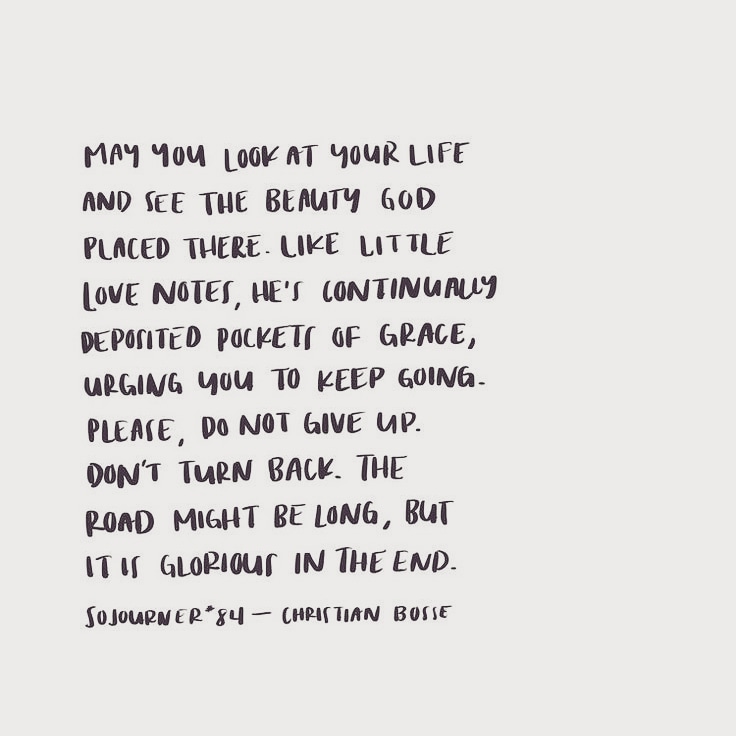 MAY YOU LOOK AT YOUR LIFE
AND SEE THE BEAUTY GOD
PLACED THERE. LIKE LITTLE
LOVE NOTES, HE'S CONTINUALLY
DEPOSITED POCKETS OF GRACE,
URGING YOU TO KEEP GOING.
PLEASE, DO NOT GIVE UP.
DON'T TURN BACK. THE
ROAD MIGHT BE LONG, BUT
IT IS GLORIOUS IN THE END.
SOJOURNER #84 — CHRISTIAN BOSSE